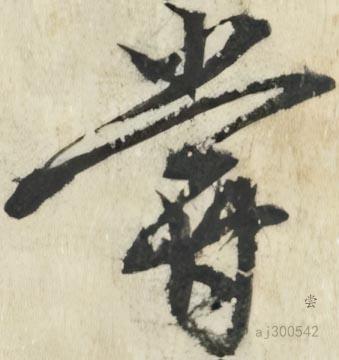 尝
尝
aj300542